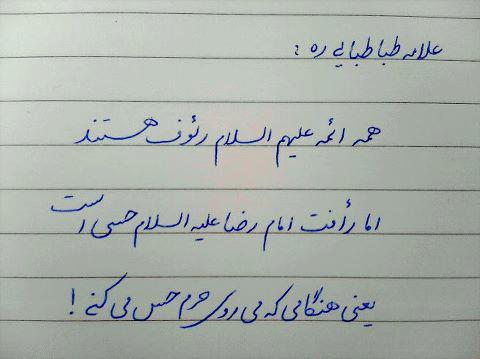 علامه طباطبایی ره :
همه ائمه علیهم السلام رئوف هستند
اما رأفت امام رضا علیه السلام حسی است
یعنی هنگامی که می روی حرم حس می کنی !